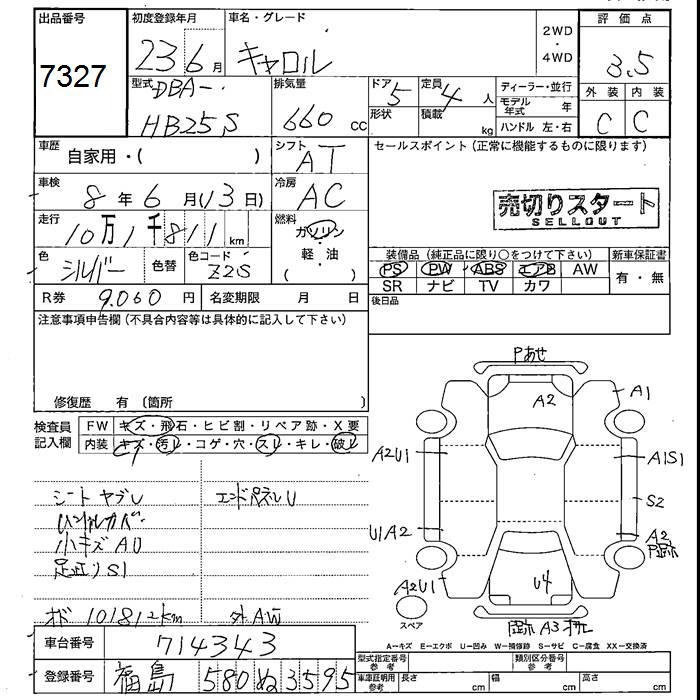 出品番号 初度登録年月 車名・グレード 2WD ・ 4WD 評価点
7327 23 6月 キャロル 3.5
型式 DBA- HB25S 排気量 660 cc ドア 5 定員 4 人 ディーラー・並行 外装 内装
形状 積載 kg モデル年式 年 C C
ハンドル 左・右
車歴 自家用・( ) シフト AT セールスポイント(正常に機能するものに限ります)
車検 8年 6月(13日) 冷房 AC 売切りスタート
SELLOUT
走行 10万1千811km 燃料 ガソリン・軽・油 ( )
色 シルバー 色替 色コード Z2S 装備品(純正品に限り○をつけて下さい) 新車保証書
PS PW ABS エアB AW 有・無
R券 9,060円 名変期限 月 日 SR ナビ TV カワ
後日品
注意事項申告欄(不具合内容等は具体的に記入して下さい)
修復歴 有(箇所 )
検査員記入欄 FW キズ・飛石・ヒビ割・リペア跡・X要
内装 キズ・汚レ・コゲ・穴・スレ・キレ・破レ
シート ヤブレ エンドパネルU
ハンドルカバー
小キズAU
足廻りS1
オド 101812km 外AW
Pあせ
A2 A1
A2U1 A1S1
S2
U1A2 A2
A2U1 U4
スペア A3
A=キズ E=エクボ U=凹み W=補修跡 S=サビ C=腐食 XX=交換済
車台番号 714343 型式指定番号 参考 類別区分番号 参考
登録番号 福島 580 ぬ 3595 車庫証明用 参考 長さ cm 幅 cm 高さ cm